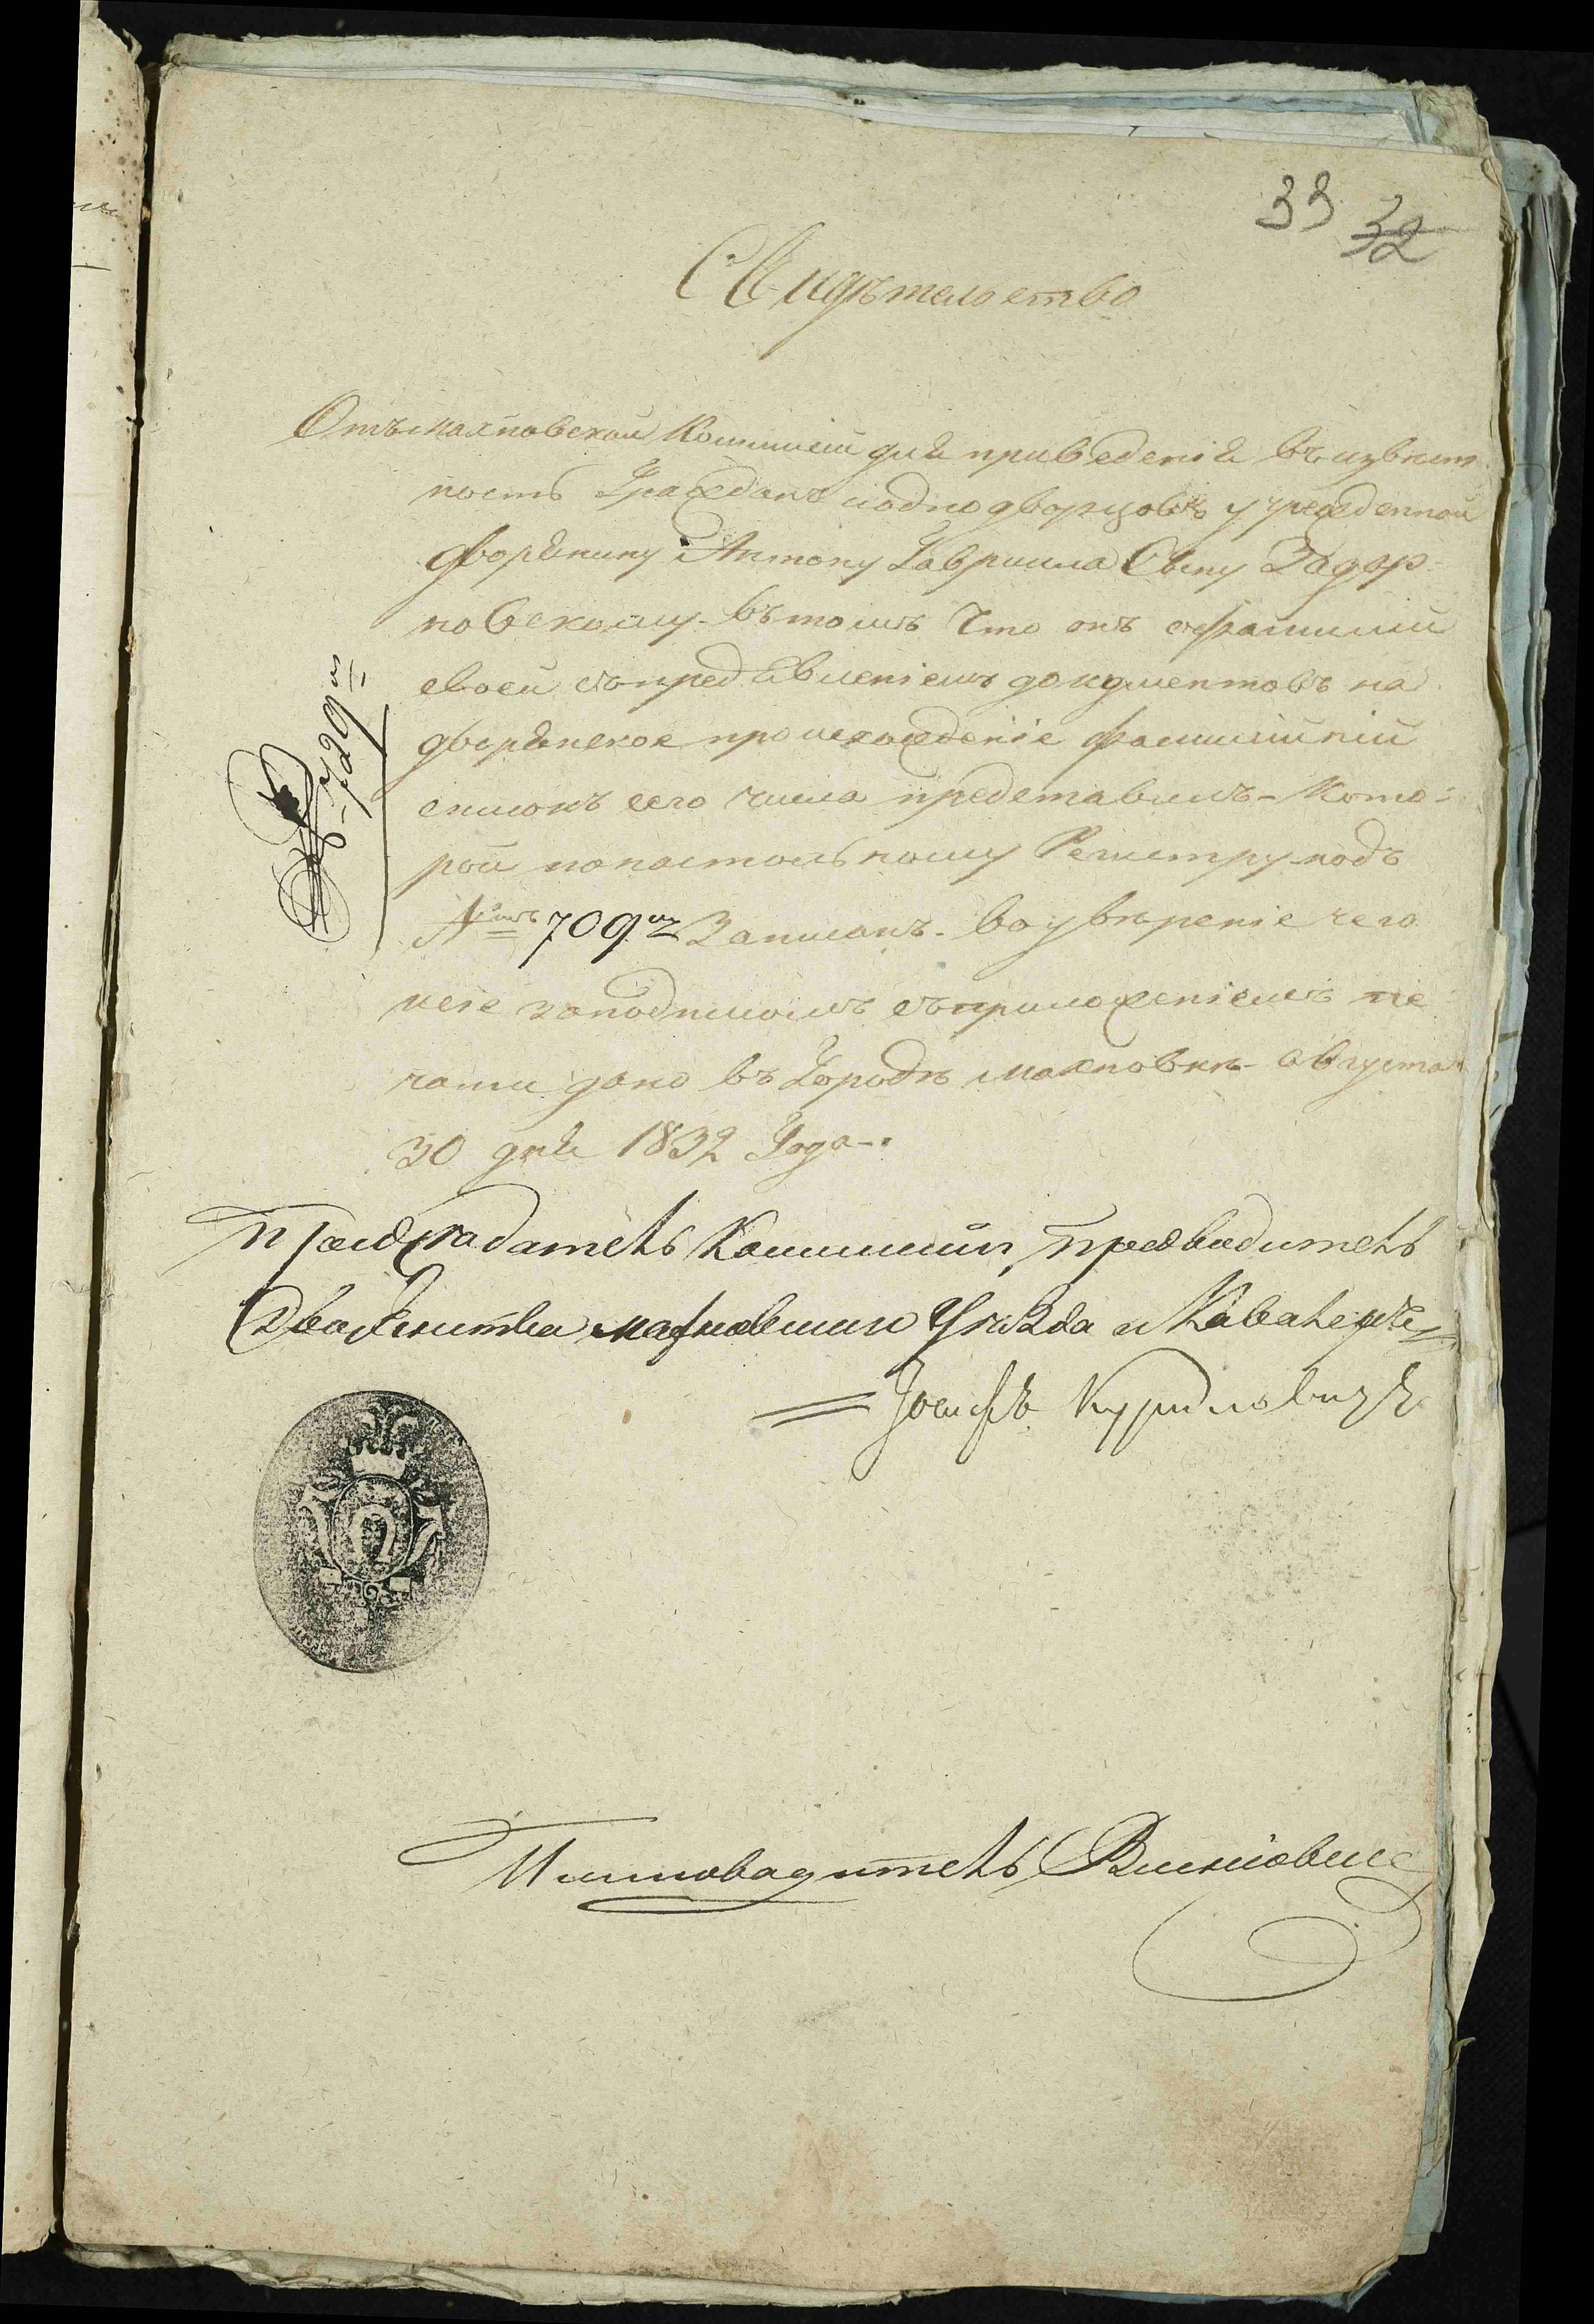 33 32
Свидѣтельство
Отъ Махновской Коммисіи для приведенія въ извѣст
ность Граждан иоднодворцовъ учрежденной
дворянину Антону Гавриила Сыну Задор
новскому въ томъ Что онъ офамилии
своей съ предъявленіемъ документовъ на
дворянское происхожденіе фамилійній
списокъ сего числа представилъ - Кото:
рой понастольному Регистру подъ
№мъ 709мъ Записанъ - воувѣреніе чего
и сіе заподписомъ съприложеніемъ пе
чати дано въ Городѣ Махновкѣ августа
30 дня 1832 Года -.
№ 729м
Председатель Коммиссии, Предводитель
Дворянства Махновскаго Уѣзда и Кавалеръ
Іосифъ
Письмоводитель